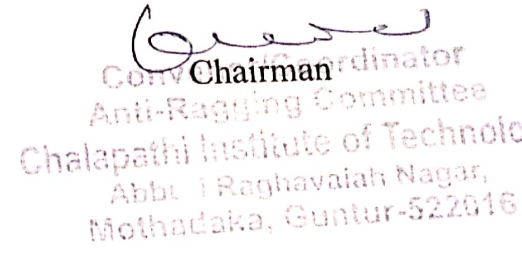 Chairman
Convener/Coordinator
Anti-Ragging Committee
Chalapathi Institute of Technolo
Raghavaiah Nagar,
Mothadaka, Guntur-522016